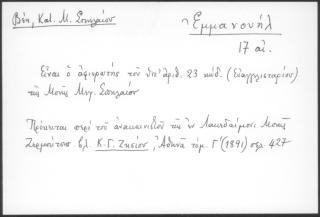 Βέη, Κατ. Μ. Σπηλαίου
Ἐμμανουήλ
17 αἰ.
Εἶναι ὁ ἀφιερωτής τοῦ ὑπ' ἀριθ. 23 κώδ. (Εὐαγγελισταρίου)
τῆς Μονῆς Μεγ. Σπηλαίου
Πρόκειται περί τοῦ ἀνακαινιστοῦ τῆς ἐν Λακεδαίμονι Μονῆς
Ζερμπίτσης βλ. Κ.Γ. Ζησίου, Ἀθηνᾶ τόμ. Γ' (1891) σελ. 427